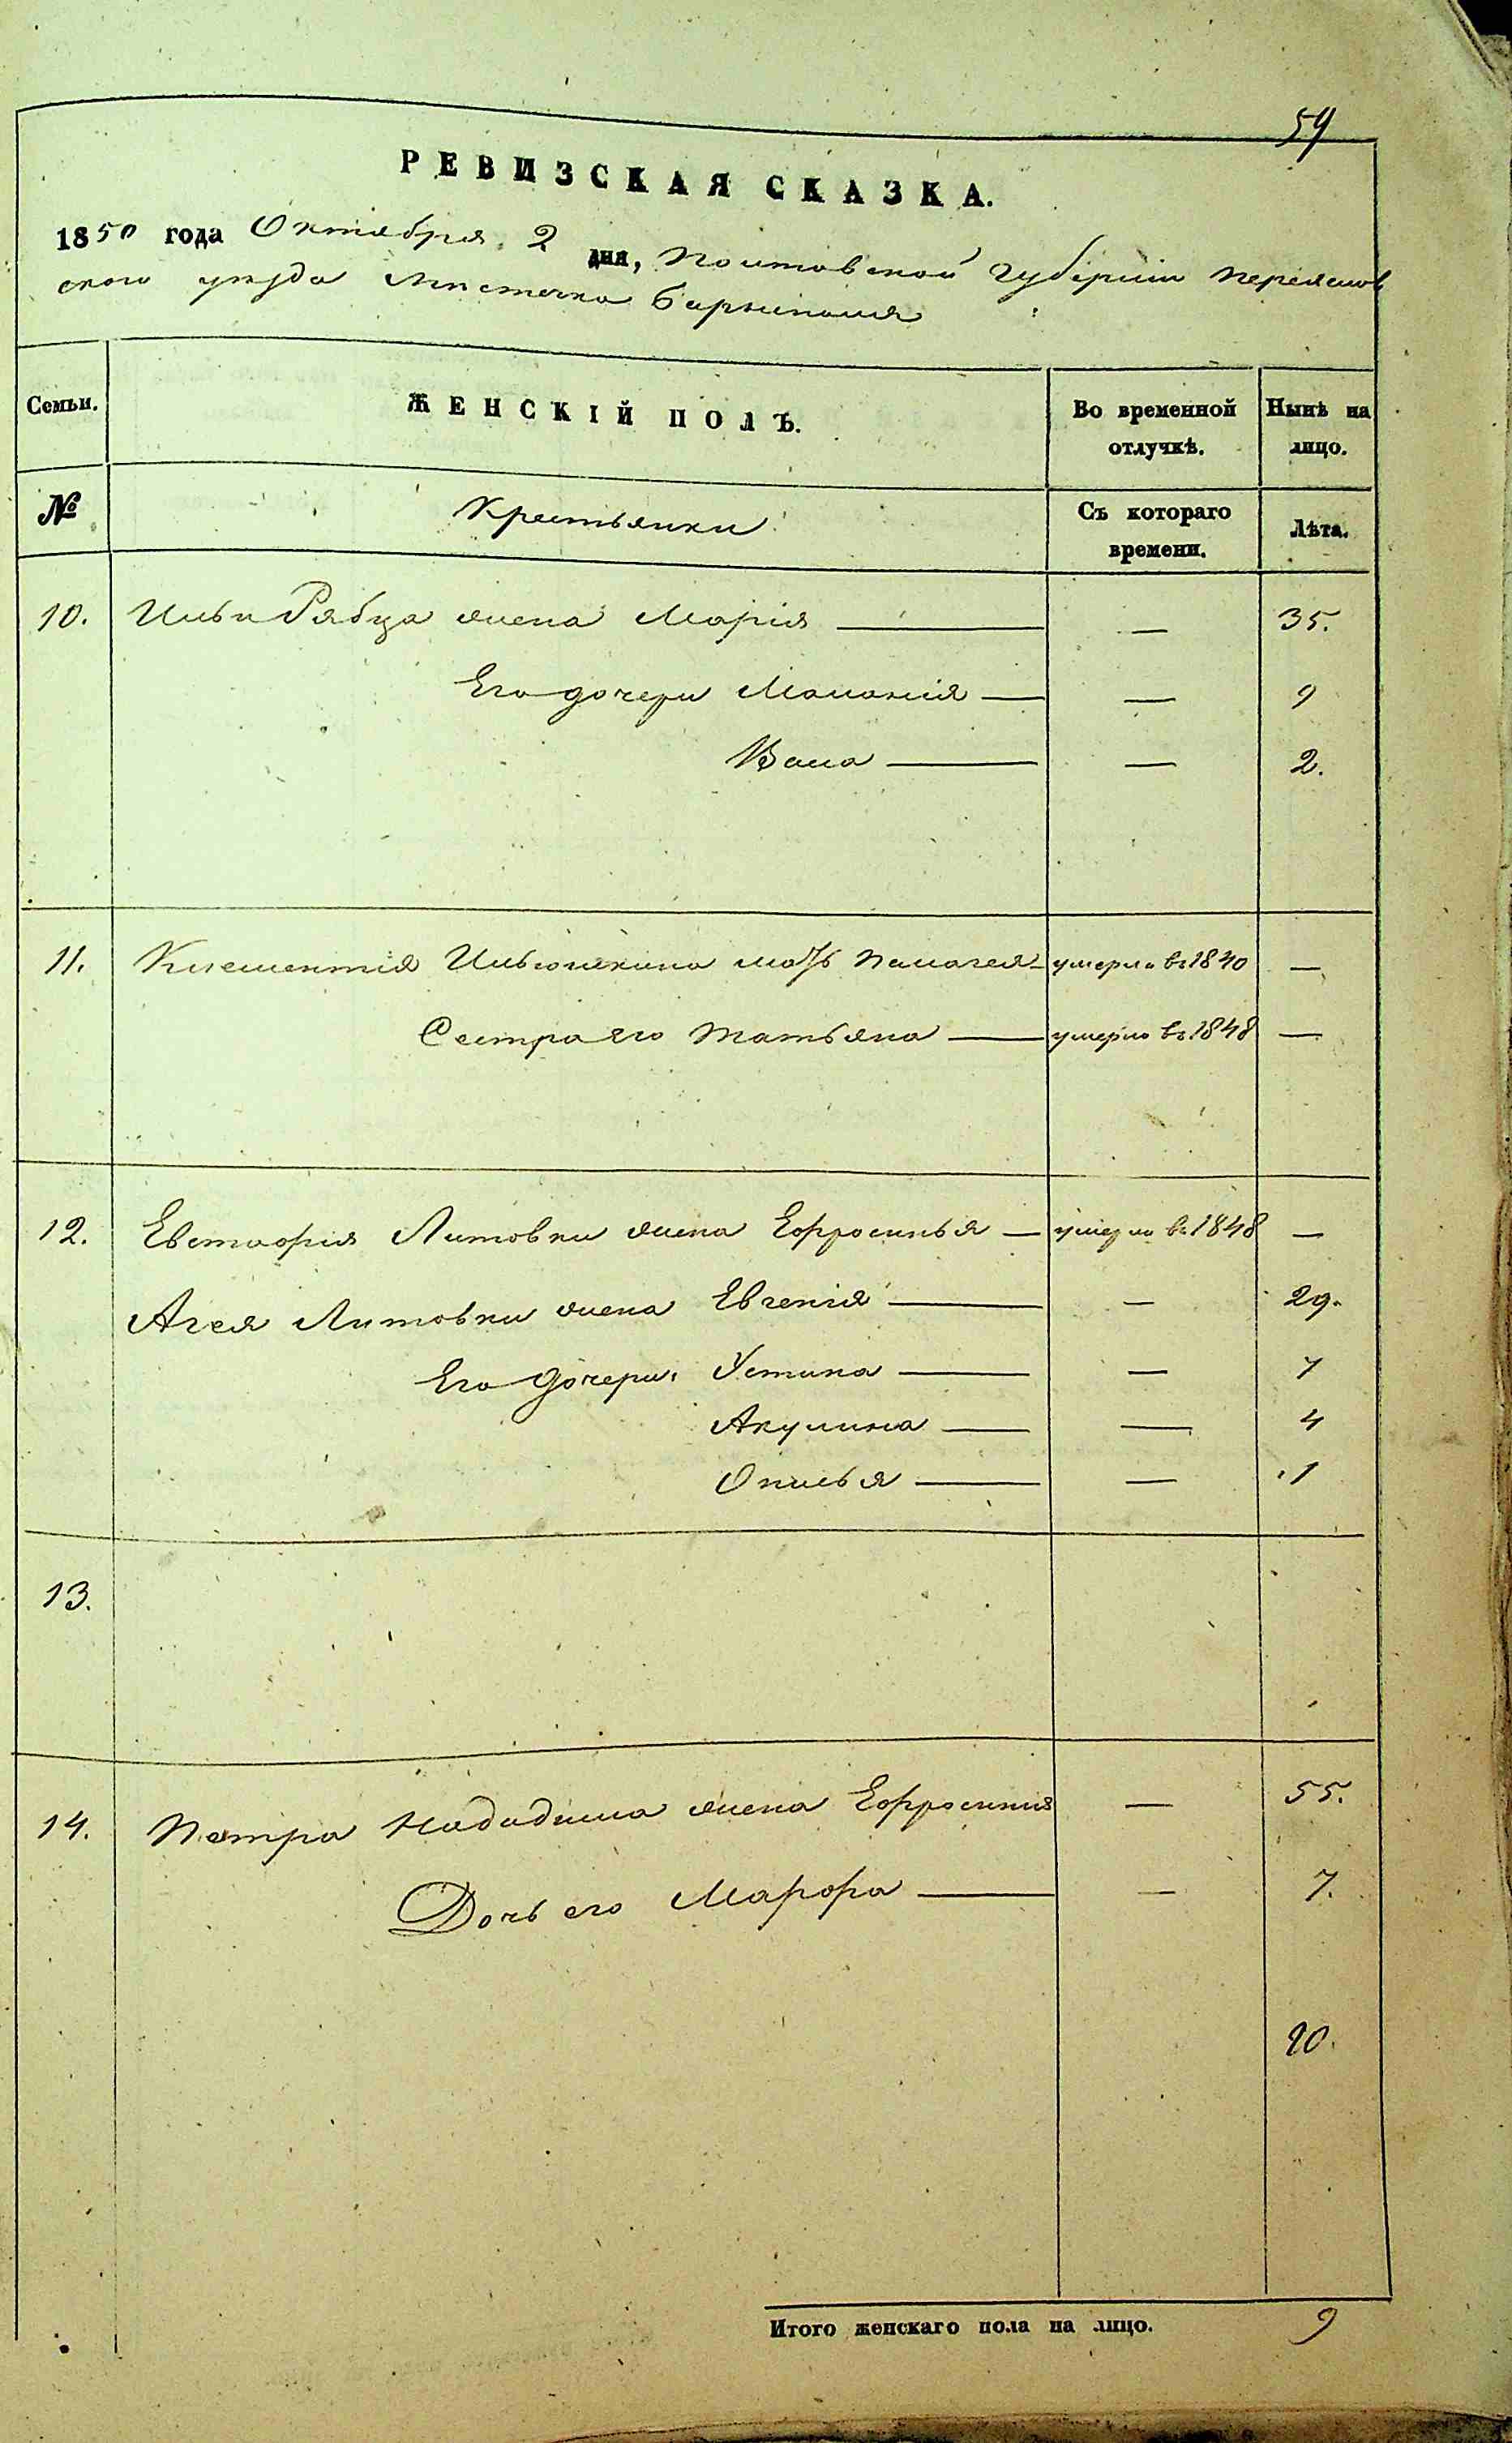 59
РЕВИЗСКАЯ СКАЗКА.
1850 года Октября 2 дня, Полтавской губерніи Переяслов
ского уезда Местечка Барышполя
Семьи. ЖЕНСКІЙ ПОЛЪ. Во временной отлучкѣ. Нынѣ на лицо.
№ Крестьянки Съ котораго времени. Лѣта.
10. Ильи Рябца жена Марія — — 35.
Его дочери Маланія — — 9
Васа — — 2.
11. Клементія Ильюшкина мать Палагея — умерла в 1840 —
Сестра его Татьяна — умерла в 1848 —
12. Евстафія Литовки жена Ефросинья — умерла в 1848 —
Агея Литовки жена Евгенія — — 29.
Его дочери. Устина — — 7
Акулина — — 4
Опилья — — 1
13.
14. Петра жена Ефросинія — 55.
Дочь его Марфа — — 7.
10.
Итого женскаго пола на лицо. 9